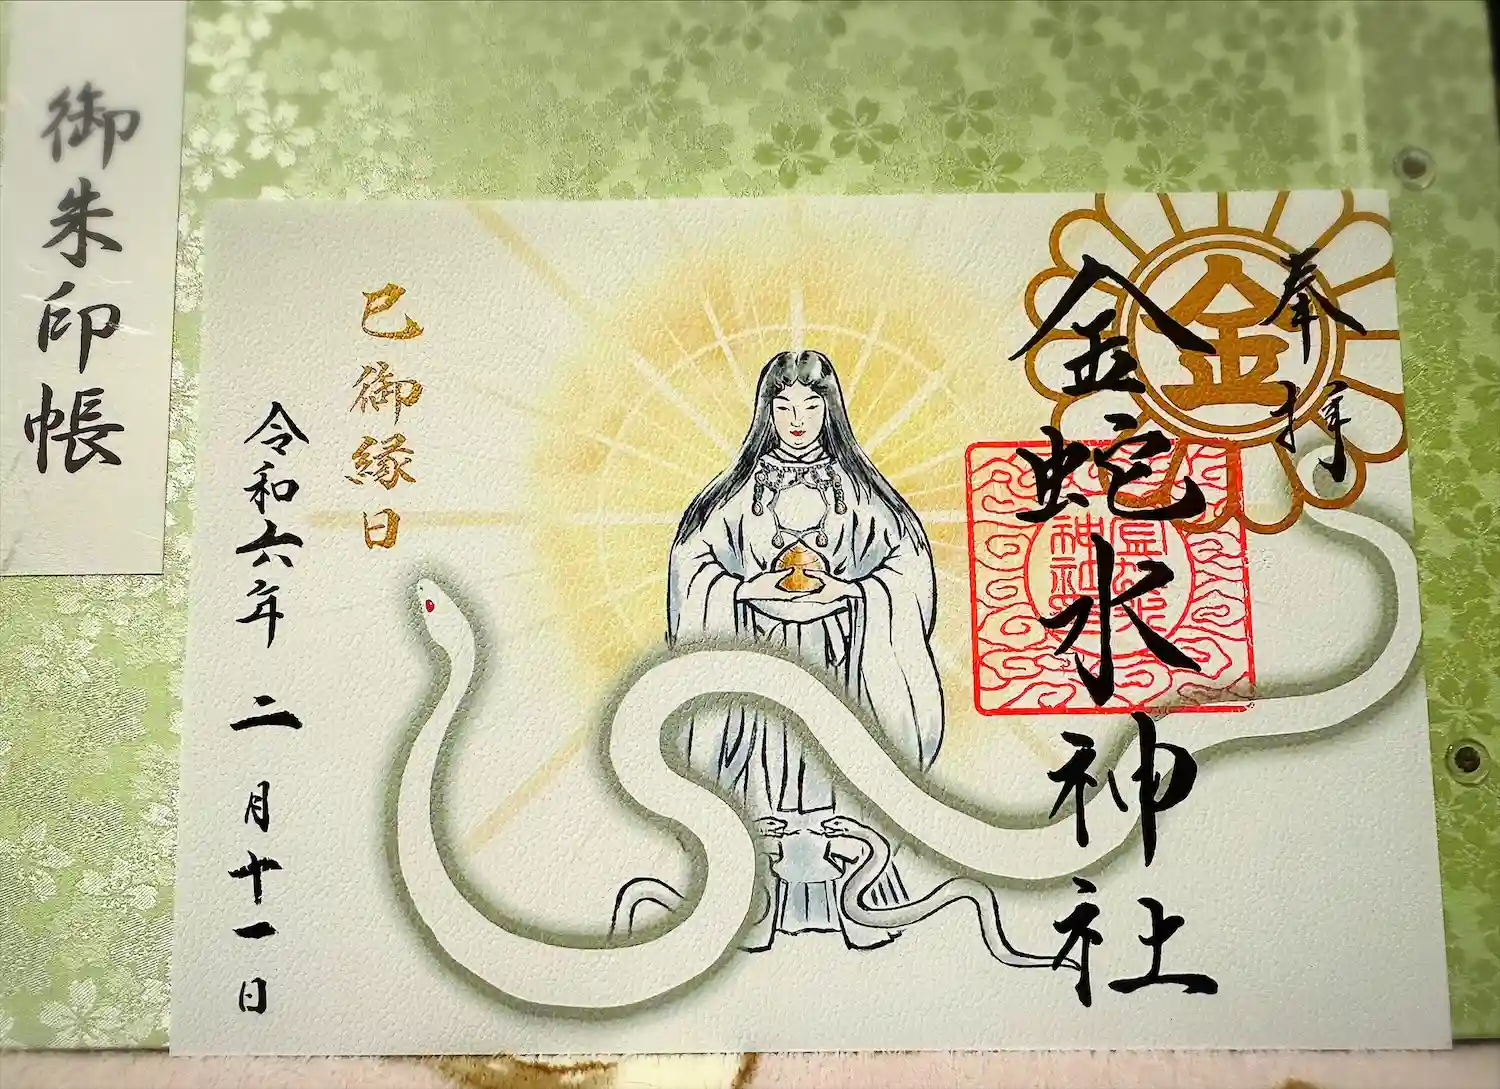 奉拝
金
金蛇水神社
巳御縁日
令和六年 二月十一日
御朱印帳